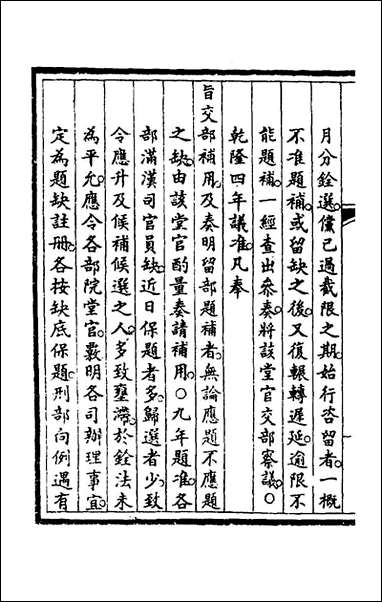 月分銓選儻已過截限之期始行咨留者一概
不准題補或留缺之後又復輾轉遲延逾限不
能題補一經查出叅奏將該堂官交部察議〇
乾隆四年議准凡奉
旨交部補用及奏明留部題補者無論應題不應題
之缺由該堂官酌量奏請補用〇九年題准各
部滿漢司官員缺近日保題者多歸選者少致
令應升及候補候選之人多致壅滯於銓法未
為平允應令各部院堂官覈明各司辦理事宜
定為題缺註冊各按缺底保題刑部向例遇有